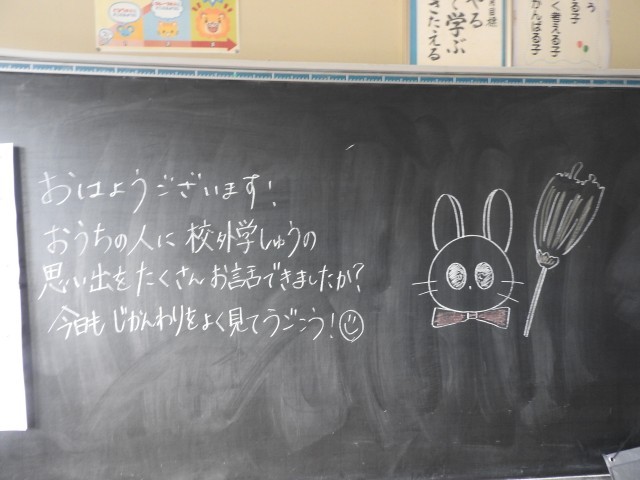 おはようございます!
おうちの人に 校外学しゅうの
思い出をたくさんお話できましたか?
今日も じかんわりをよく見てうごこう!
やる
て学ぶ
さたえる